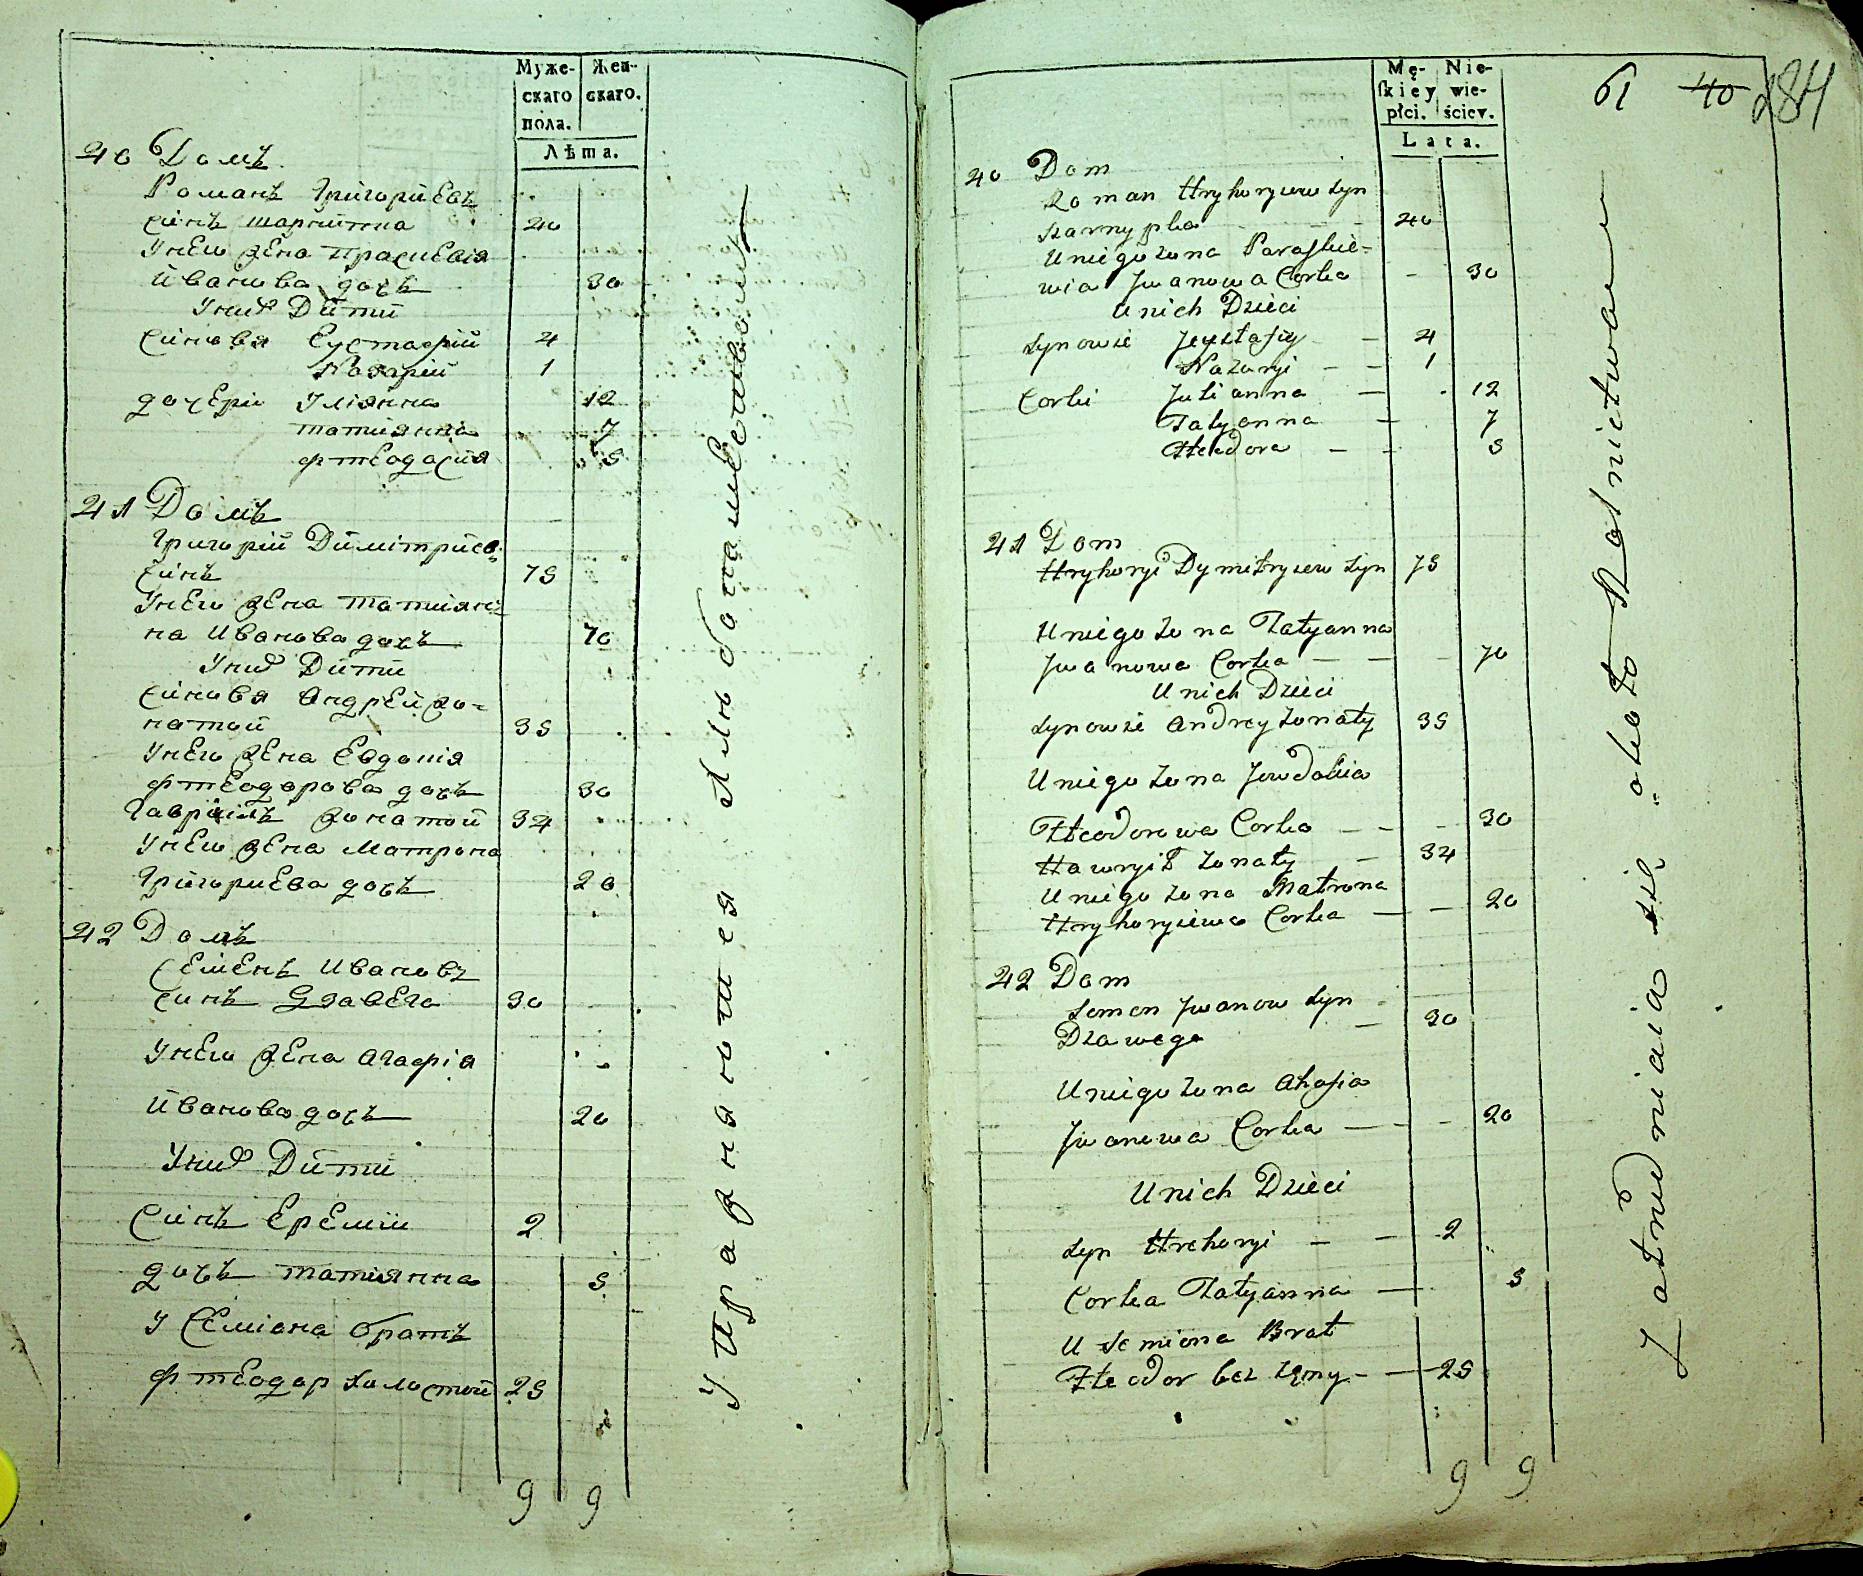 Муже-
скаго
пола.
Жен-
скаго.
Лѣта.
40 Домъ
Романъ Григориевъ
Синъ Шарпипка 40
Унего Жена Праскевія
Иванова дочь 30
Униⷯ Дити
Синовя Еустафій 4
Назарій 1
дочери Уліянна 12
татиянна 7
фтеодосия 5
41 Домъ
Григорій Димітриев
Синъ 75
Унего Жена татиян
на Иванова дочь 70
Униⷯ Дити
Синовя Андрей жо-
натой 35
Унего Жена Евдокія
фтеодорова дочь 30
Гавріилъ жонатой 34
Унего Жена Матрона
Григориева дочь 20
42 Домъ
Семенъ Ивановъ
Синъ Дзавега 30
Унего Жена Агафія
Иванова дочь 20
Униⷯ Дити
Синъ Еремій 2
дочь татиянна 5
У Семіона братъ
фтеодор холостой 25
9 9
Упражняются Хлѣбопашеством
Mę-
ſkiey
płci.
Nie-
wie-
ściey.
Lata.
61 40 284
40 Dom
Roman Hryhoryiew Syn
Szarnypka 40
U niego żona Paraskie-
wia Jwanowa Corka 30
U nich Dzieci
Synowie Jeystafiy 4
Nazaryi 1
Corki Julianna 12
Tatyanna 7
Fteodora 5
41 Dom
Hryhoryi Dymitryiew Syn 75
U niego żona Tatyanna
Jwanowa Corka 70
U nich Dzieci
Synowie Andrey żonaty 35
U niego żona Jewdokia
Fteodorowa Corka 30
Hawryił żonaty 34
U niego żona Matrona
Hryhoryiewa Corka 20
42 Dom
Semen Jwanow Syn
Dzawega 30
U niego żona Ahafia
Jwanowa Corka 20
U nich Dzieci
Syn Hrehoryi 2
Corka Tatyanna 5
U Semiona Brat
Fteodor bez żęny 25
9 9
Zatrudniaia się około Rolnictwa